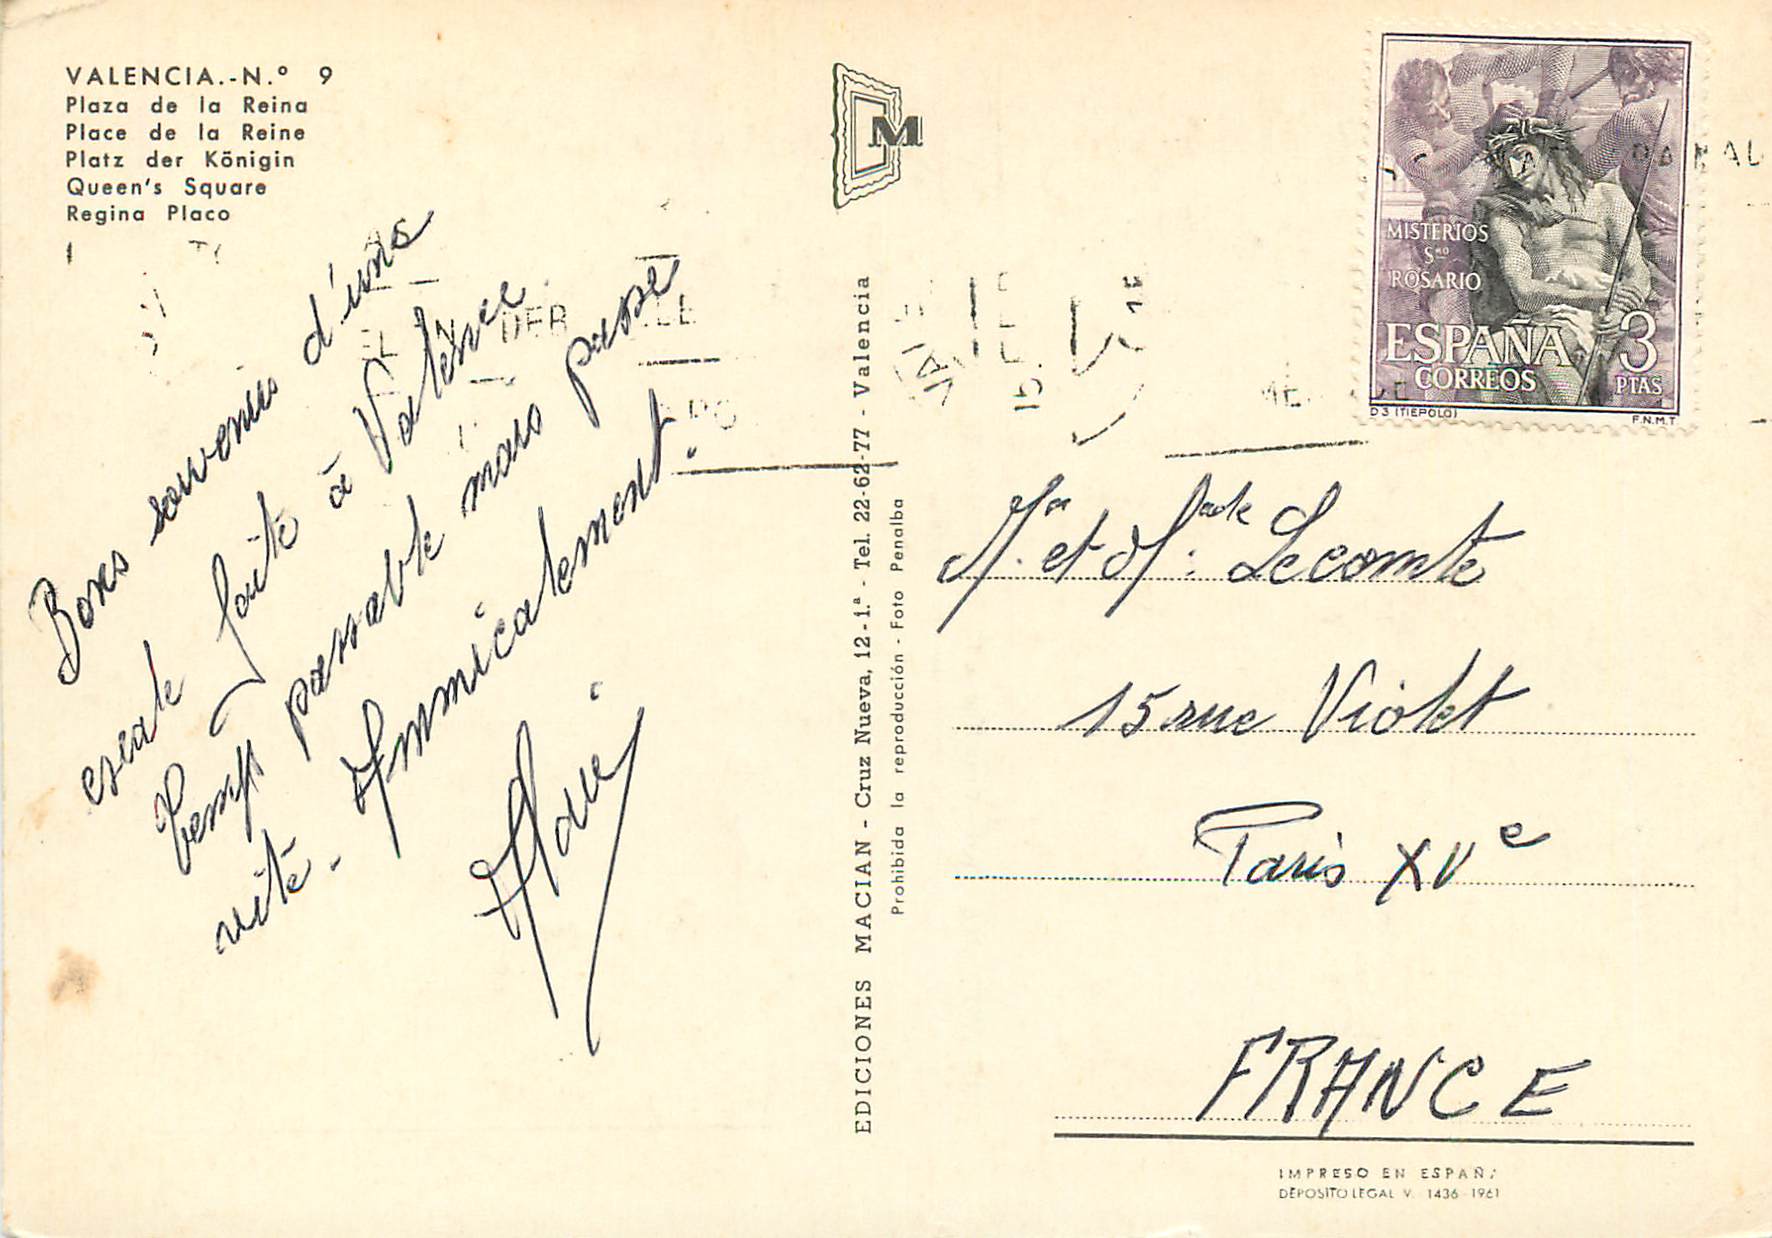 VALENCIA.-N.º 9
Plaza de la Reina
Place de la Reine
Platz der Königin
Queen's Square
Regina Placo
Bons souvenirs d'une
escale faite à Valence
temps passable mais passe
vite. Ammicalement.
M
EDICIONES MACIAN - Cruz Nueva, 12-1.ª - Tel. 22-62-77 - Valencia
Prohibida la reproducción - Foto Penalba
MISTERIOS
Sᵐᵒ
ROSARIO
ESPAÑA 3
CORREOS PTAS
D 3 (TIEPOLO) F.N.M.T
Lecomte
15 rue Violet
Paris XVe
FRANCE
IMPRESO EN ESPAÑA
DEPOSITO LEGAL V. 1436-1961